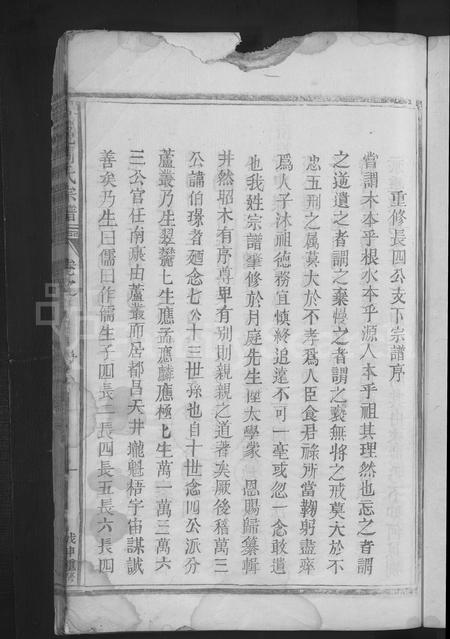 重修長四公支下宗譜序
嘗謂木本乎根水本乎源人本乎祖其理然也忘之者謂
之逆遺之者謂之棄慢之者謂之褻無將之戒莫大於不
忠五刑之属莫大於不孝爲人臣食君祿所當鞠躬盡瘁
爲人子沐祖德務宜慎終追遠不可一毫或忽一念敢遺
也我姓宗譜肇修於月庭先生陞太學蒙 恩賜歸纂輯
井然昭木有序尊卑有別則親親之道著矣厥後稽萬三
公諱伯璟者廼念七公十三世孫也自十世念四公派分
蘆叢乃生翠巖七生應孟應麟應極七生萬一萬三萬六
三公官任南康由蘆叢而居都昌天井壠魁梧宇宙謀誠
善矣乃生曰儒曰作儒生子四長二長四長五長六長四
氏宗譜
戊申重修